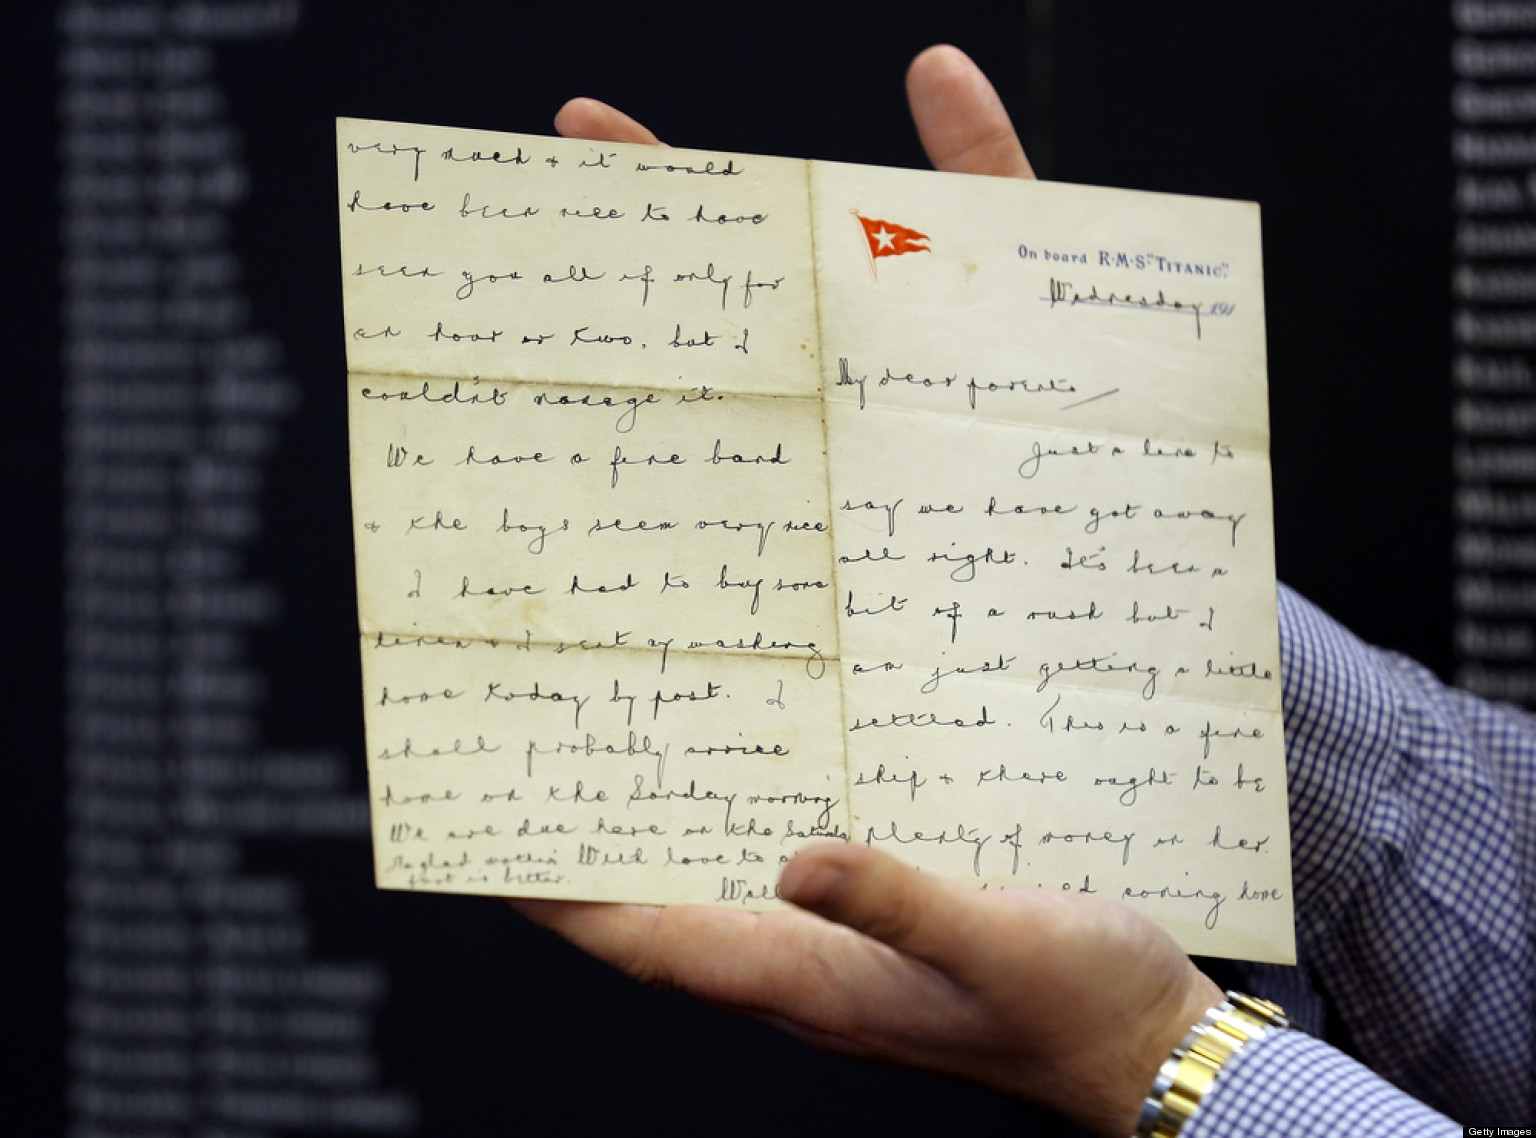 On board R.M.S. "TITANIC".
Wednesday 191
My dear parents
Just a line to
say we have got away
all right. It's been a
bit of a rush but I
am just getting a little
settled. This is a fine
ship & there ought to be
plenty of money on her.
coming home
very much & it would
have been nice to have
seen you all if only for
an hour or two, but I
couldn't manage it.
We have a fine band
& the boys seem very nice
I have had to buy some
linen & I sent my washing
home today by post. I
shall probably arrive
home on the Sunday morning
We are due here on the
With love to
foot is better.
Getty Images